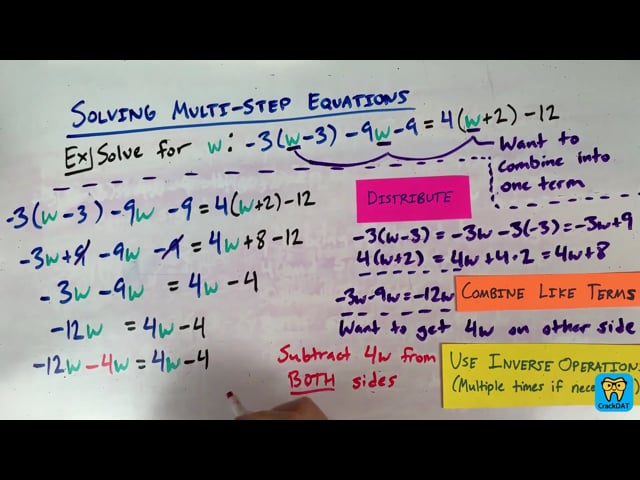 SOLVING MULTI-STEP EQUATIONS
Ex) Solve for w: -3(w-3) - 9w - 9 = 4(w+2) - 12
Want to
combine into
one term
-3(w-3) - 9w - 9 = 4(w+2) - 12
-3w + 9 - 9w - 9 = 4w + 8 - 12
-3w - 9w = 4w - 4
-12w = 4w - 4
-12w - 4w = 4w - 4
DISTRIBUTE
-3(w-3) = -3w - 3(-3) = -3w + 9
4(w+2) = 4w + 4·2 = 4w + 8
-3w - 9w = -12w
COMBINE LIKE TERMS
Want to get 4w on other side
Subtract 4w from
BOTH sides
USE INVERSE OPERATION
(Multiple times if
CrackDAT